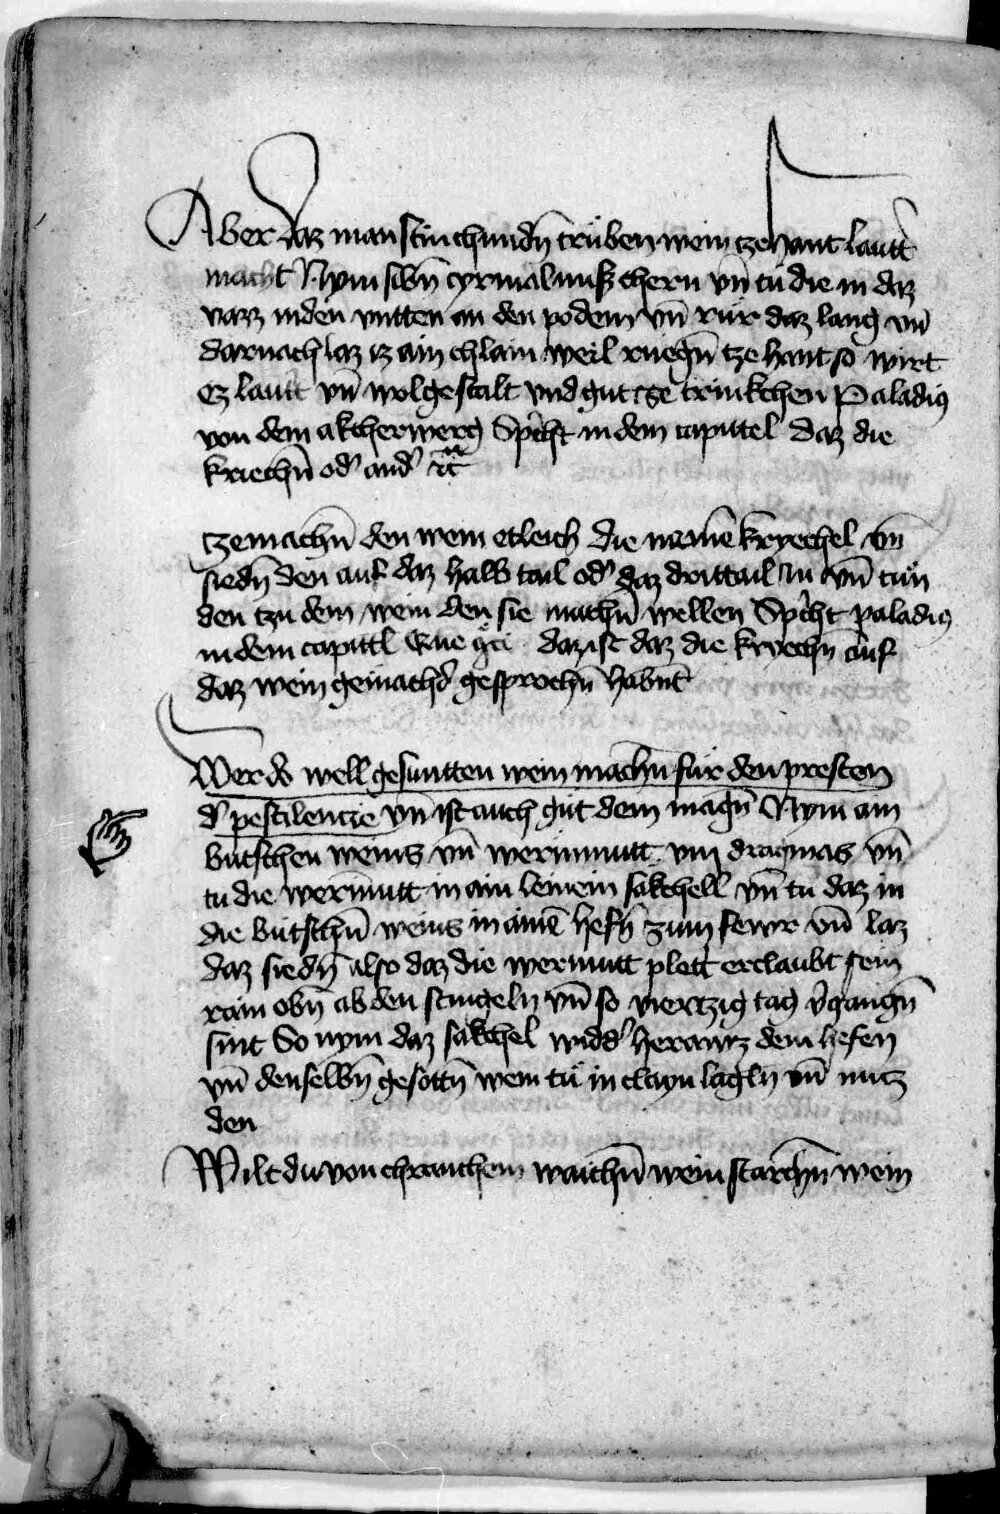 Aber daz man stinchundn̄ trüben wein tzehant lautt̄
macht Nym sibn̄ cyrmalnusz chern vn̄ tu die in daz
vazz inden vntten an den podem vn̄ rür daz lang vn̄
darnach laz iz ain chlain weil ruegn̄ tze hant so wirt
ez laut̄t vn̄ wolgestalt vnd gut tze trinkchen Paladiꝯ
von dem akcherwerch Sp̄cht in dem capittel Daz die
kriechn̄ od̄ and̄ ꝛc̄
tzemachn̄ den wein etleich die neme̅ kryechel vn̄
siedn̄ den auf daz halb tail od̄ daz drittail in vn̄ tün
den tzu dem wein den sie machn̄ wellen Sp̄cht paladiꝯ
in dem capittl Que gͦci daz ist daz die kriechn̄ auf
daz wein gemachd̄ gesprochn̄ habnt
Wer do well gesuntten wein machn̄ für den presten
d̄ pestilencie vn̄ ist auch güt dem magn̄ Nym ain
bütschen weins vn̄ wermmutt viij dragmas vn̄
tu die wermutt in ain leinein säkchell vn̄ tu daz in
die bütschn̄ weins in aine̅ hefn̄ zum fewr vn̄ laz
daz siedn̄ also daz die wermutt plett̄ erclaubt sein
rain obn̄ ab den stingeln vn̄ so viertzig tag v̄gangn̄
sint So nym daz säkchel widd̄ herawz dem hefen
vn̄ denselbn̄ gesottn̄ wein tü in clayn lagln vn̄ nutz
den
Wilt du von chranchem waichn̄ wein starchn̄ wein